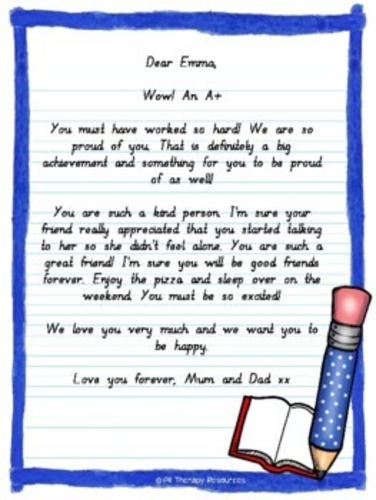 Dear Emma,
Wow! An A+
You must have worked so hard! We are so
proud of you. That is definitely a big
achievement and something for you to be proud
of as well!
You are such a kind person. I'm sure your
friend really appreciated that you started talking
to her so she didn't feel alone. You are such a
great friend! I'm sure you will be good friends
forever. Enjoy the pizza and sleep over on the
weekend. You must be so excited!
We love you very much and we want you to
be happy.
Love you forever, Mum and Dad xx
Therapy Resources